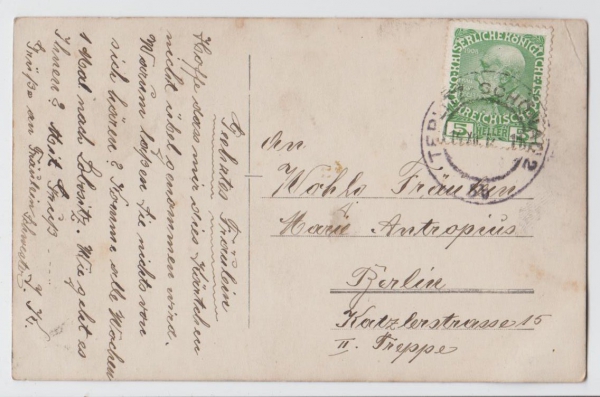 Geehrtes Fräulein
Hoffe dass mir dies Kärtchen
nicht übel genommen wird.
Warum laßen Sie nichts von
sich hören? Komme alle Wochen
1 Mal nach Lobositz. Wie geht es
Ihnen? Mit Gruß ....
Grüße an Fräulein Schwester
J. K.
An
Wohlg Fräulein
Marie Antropius
Berlin
Katzlerstrasse 15
II. Treppe
1908
5 HELLER 5
SCHÖNAU 2